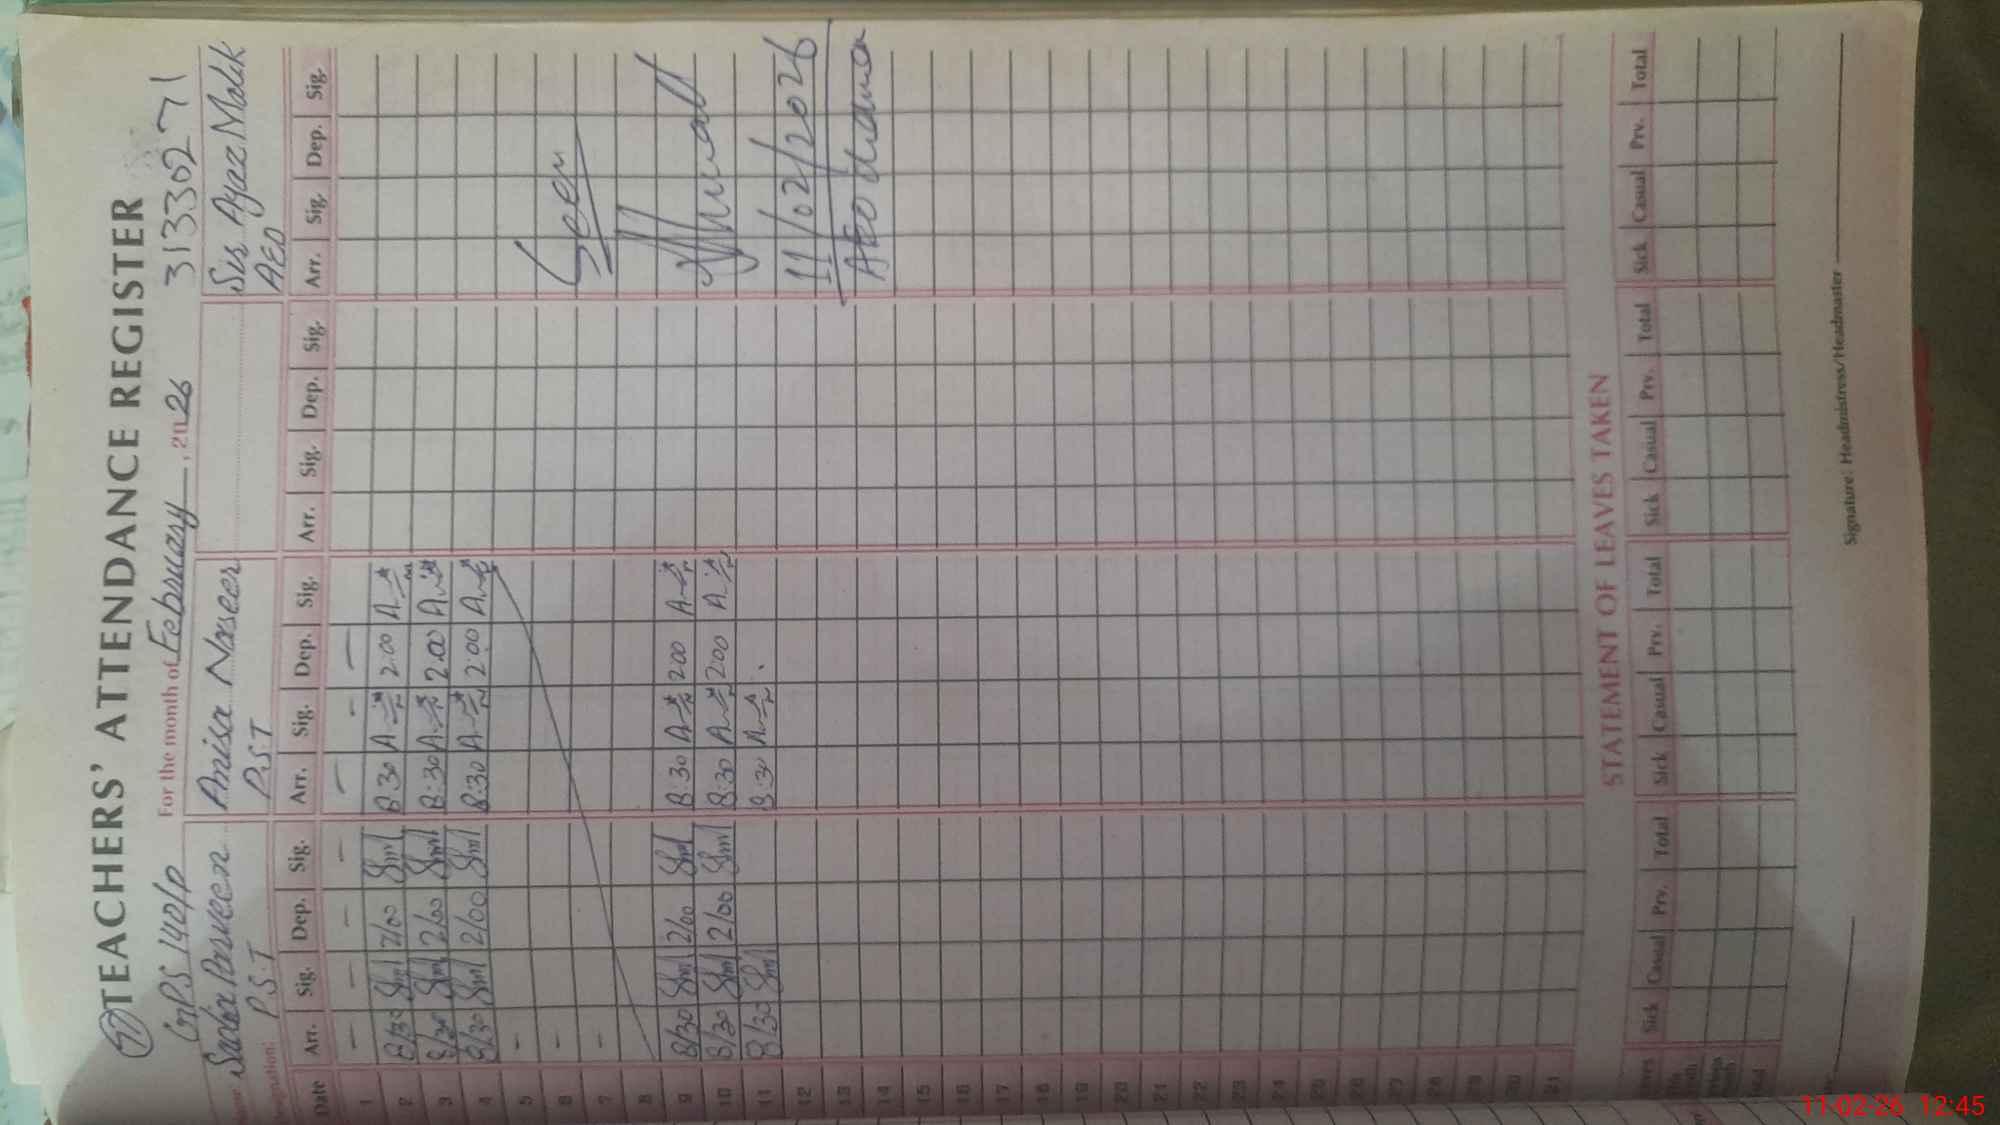 57 TEACHERS' ATTENDANCE REGISTER
GPS 140/P For the month of February, 2026 31330271
Name Sadia Parveen Anisa Naseer Sir Ayaz Malik
Designation: P.S.T P.S.T AEO
Date Arr. Sig. Dep. Sig. Arr. Sig. Dep. Sig. Arr. Sig. Dep. Sig. Arr. Sig. Dep. Sig.
1 - - - - - - -
2 8/30 2/00 8:30 2:00
3 8/30 2/00 8:30 2:00
4 8/30 2/00 8:30 2:00
5 -
6 - Seen
7 -
8
9 8/30 2/00 8:30 200
10 8/30 2/00 8:30 200
11 8/30 8:30
12 11/02/2026
13
14 AEO
15
16
17
18
19
20
21
22
23
24
25
26
27
28
29
30
31
STATEMENT OF LEAVES TAKEN
Sick Casual Prv. Total Sick Casual Prv. Total Sick Casual Prv. Total Sick Casual Prv. Total
Total
Signature: Headmistress/Headmaster
11-02-26 12:45